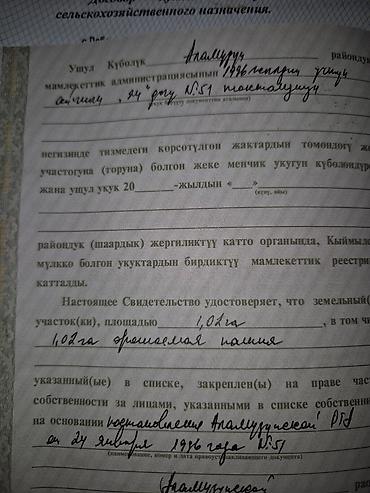 Договор
сельскохозяйственного назначения.
Ушул Күбөлүк Аламүдүн райондук
мамлекеттик администрациясынын 1996-жылдын үчүн
"24" дегу №51 токтомунун
негизинде тизмедеги көрсөтүлгөн жактардын төмөндөгү
участогуна (торуна) болгон жеке менчик укугун күбөлөндүр
жана ушул укук 20 -жылдын « »
(күнү, айы)
райондук (шаардык) жергиликтүү катто органында, Кыймыл
мүлккө болгон укуктардын бирдиктүү мамлекеттик реестри
катталды.
Настоящее Свидетельство удостоверяет, что земельный(
участок(ки), площадью 1,02га , в том чи
1,02 га орошаемая пашня
указанный(ые) в списке, закреплен(ы) на праве час
собственности за лицами, указанными в списке собственни
на основании постановления Аламудунской РГА
от 24 января 1996 года №51
(наименование, номер и дата правоустанавливающего документа)
Аламудунской